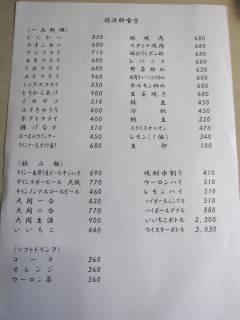 (一品料理)
とんかつ 850
チキンカツ 680
アジフライ 680
カキフライ 680
イカフライ 680
エビフライ 960
ミックスフライ 850
とりからあげ 900
イカゲソ 510
ふそきゅうり 400
ポテトフライ 400
揚げなす 510
豚焼肉 680
スタミナ焼肉 680
680
レバニラ 680
野菜炒め 630
ホルモン炒め 680
生姜焼き 680
枝豆 450
冷奴 450
納豆 220
スライスオニオン 470
レモン(1個) 340
生卵 100
(飲み物)
キリン一番搾り生ビール中ジョッキ 690
キリンラガービール 大瓶 770
キリンノンアルコールビール 460
大関一合 420
大関二合 770
大関生酒 900
いいちこ 440
焼酎水割り 410
ウーロンハイ 510
レモンハイ 510
ハイボールシングル 510
ハイボールダブル 880
いいちこボトル 2,300
ウイスキーボトル 3,030
(ソフトドリンク)
コーラ 360
オレンジ 360
ウーロン茶 360